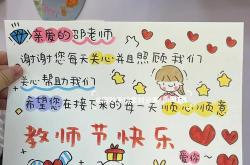 亲爱的邵老师
谢谢您每天关心并且照顾我们
关心帮助我们
希望您在接下来的每一天顺心顺意
教师节快乐